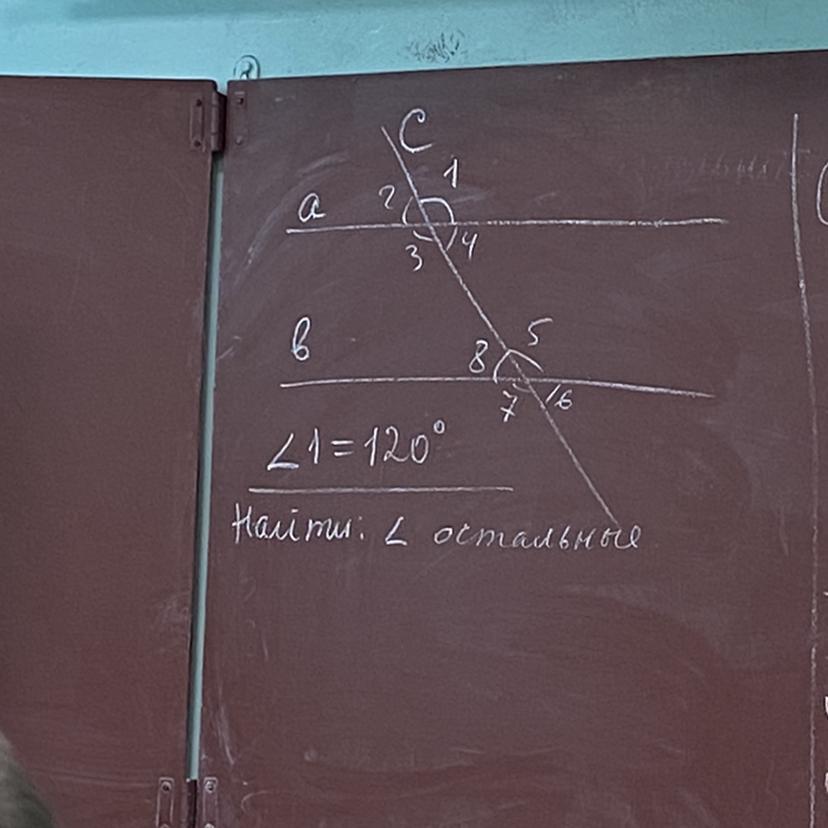 C
1
2
a
3 4
5
в
8
7 6
∠1=120°
Найти: ∠ остальные